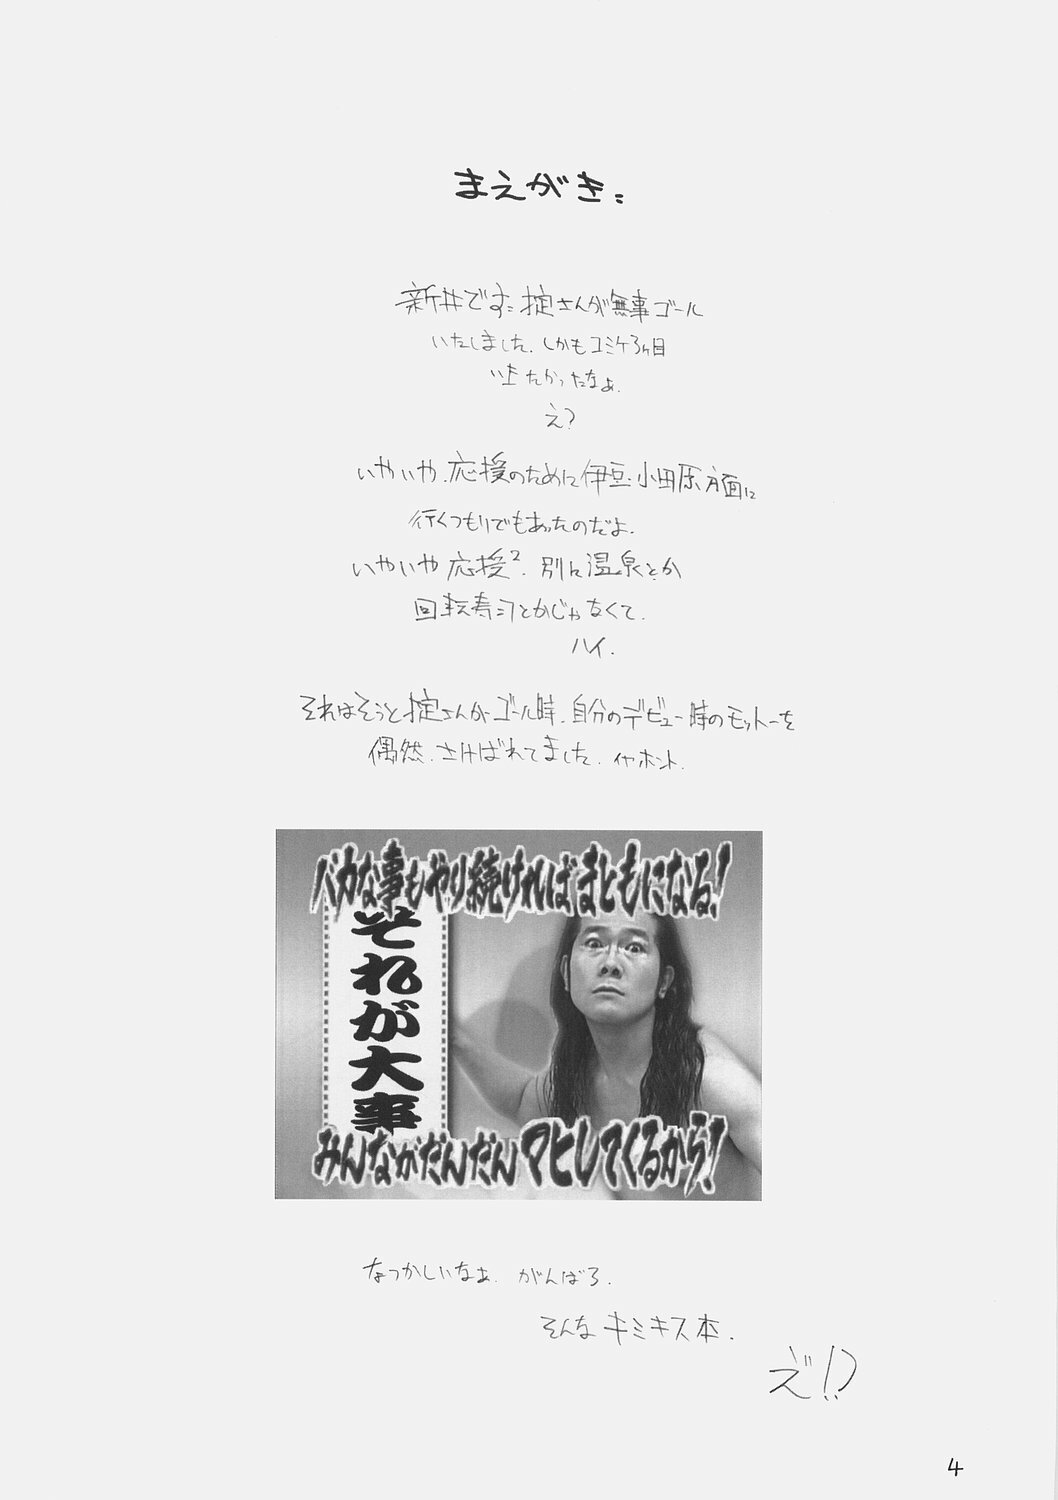 まえがき:
新井です: 掟さんが無事ゴール
いたしました. しかもコミケ3日目
いきたかったなぁ.
え?
いやいや. 応援のために伊豆・小田原方面に
行くつもりでもあったのだよ.
いやいや 応援². 別に温泉とか
回転寿司とかじゃなくて.
ハイ.
それはそうと掟さんがゴール時. 自分のデビュー時のモットーを
偶然. さけばれてました. イヤホント.
バカな事もやり続ければまともになる!
それが大事
みんながだんだんマヒしてくるから!
なつかしいなぁ. がんばろ.
そんな キミキス本.
え゛!?
4